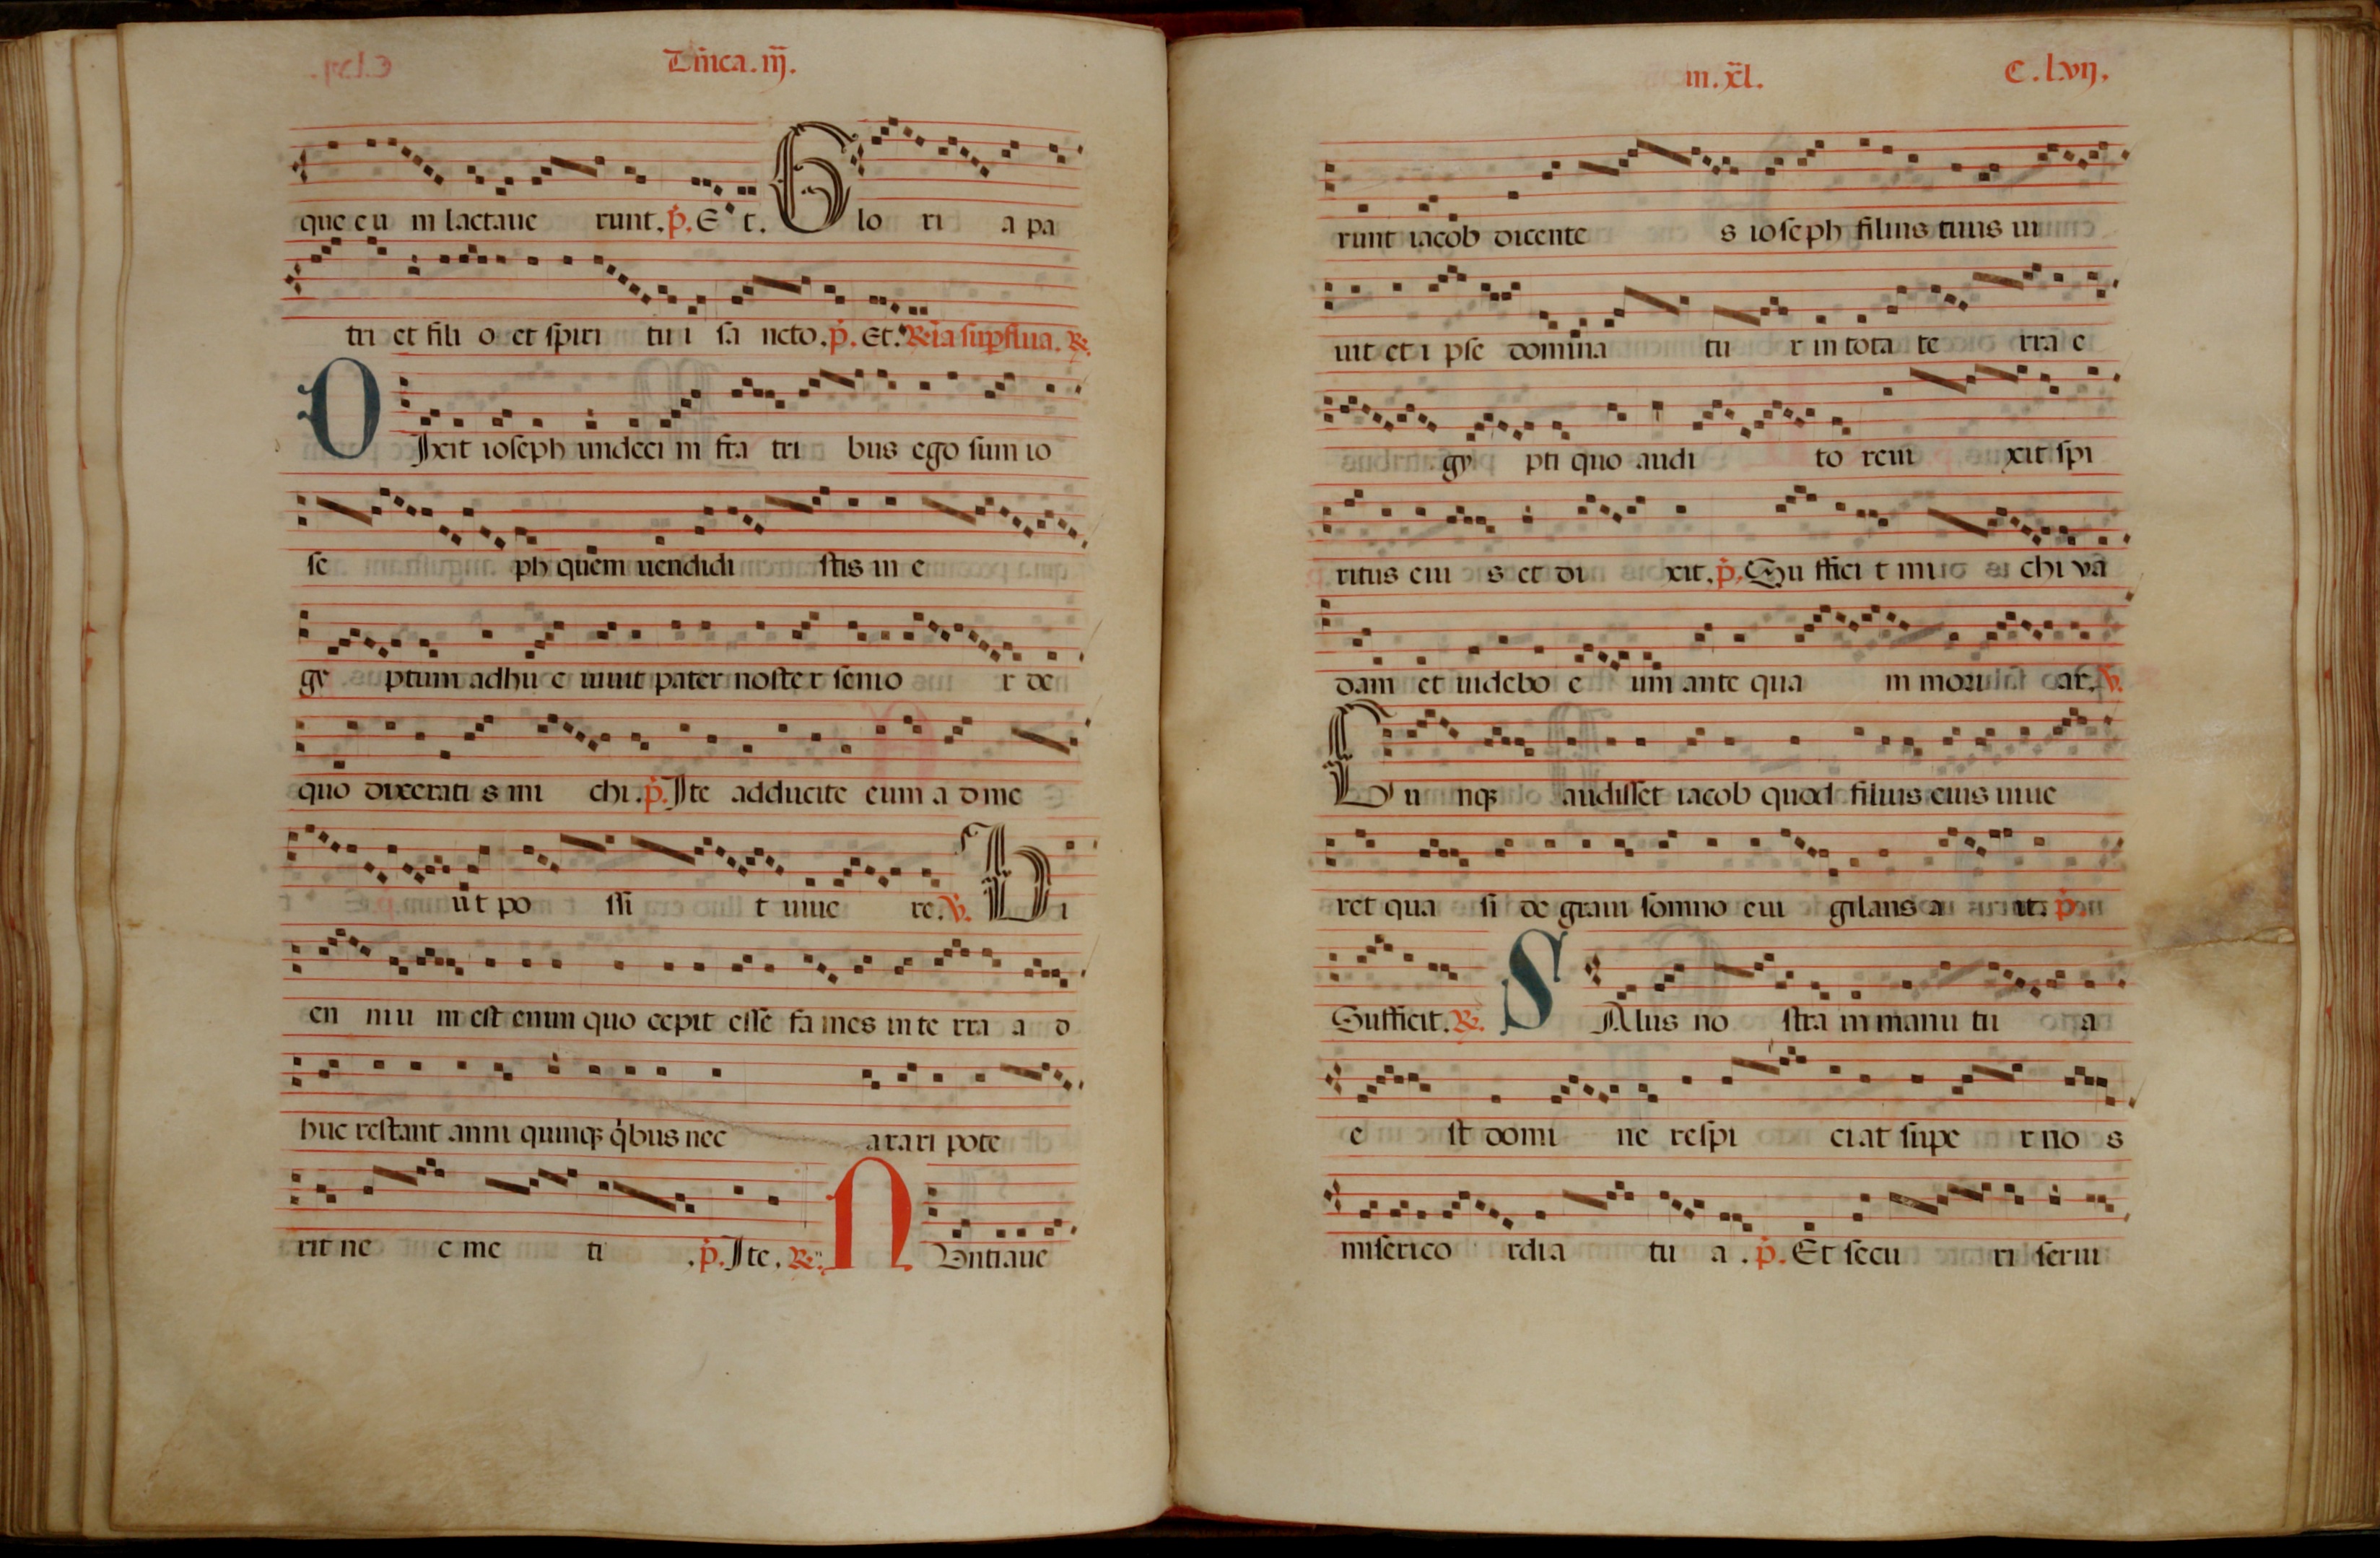 Dn̄ica. iij̄.
que eu m lactaue runt. p̄. E t. G lo ri a pa
tri et fili o et spiri tu i sa ncto. p̄. Et. R̃ia sup̱flua. R̃.
D Ixit ioseph undeci m fra tri bus ego sum io
se ph quem uendidi stis in e
gy ptum adhu c uiuit pater noste r senio r de
quo dixerati s mi chi. p̄. Ite adducite eum a d me
ut po ssi t uiue re. V̄. B i
en niu m est enim quo cepit esse fa mes in te rra a d
huc restant anni quinq; q̇bus nec arari pote
rit ne c me ti . p̄. Ite. R̃. N Untiaue
in. xl̄. C. lvij.
runt iacob dicente s ioseph filius tuus ui
uit et i pse domina tu r in tota te rra e
gy pti quo audi to reui xit spi
ritus eiu s et di xit. p̄. Su ffici t mi chi va
dam et uidebo e um ante qua m mori ar. V̄.
C u nq; audisset iacob quod filius eius uiue
ret qua si de graui somno eui gilans a it. p̄.
Sufficit. R̃. S Alus no stra in manu tu a
e st domi ne respi ciat supe r no s
miserico rdia tu a . p̄. Et secu ri serui